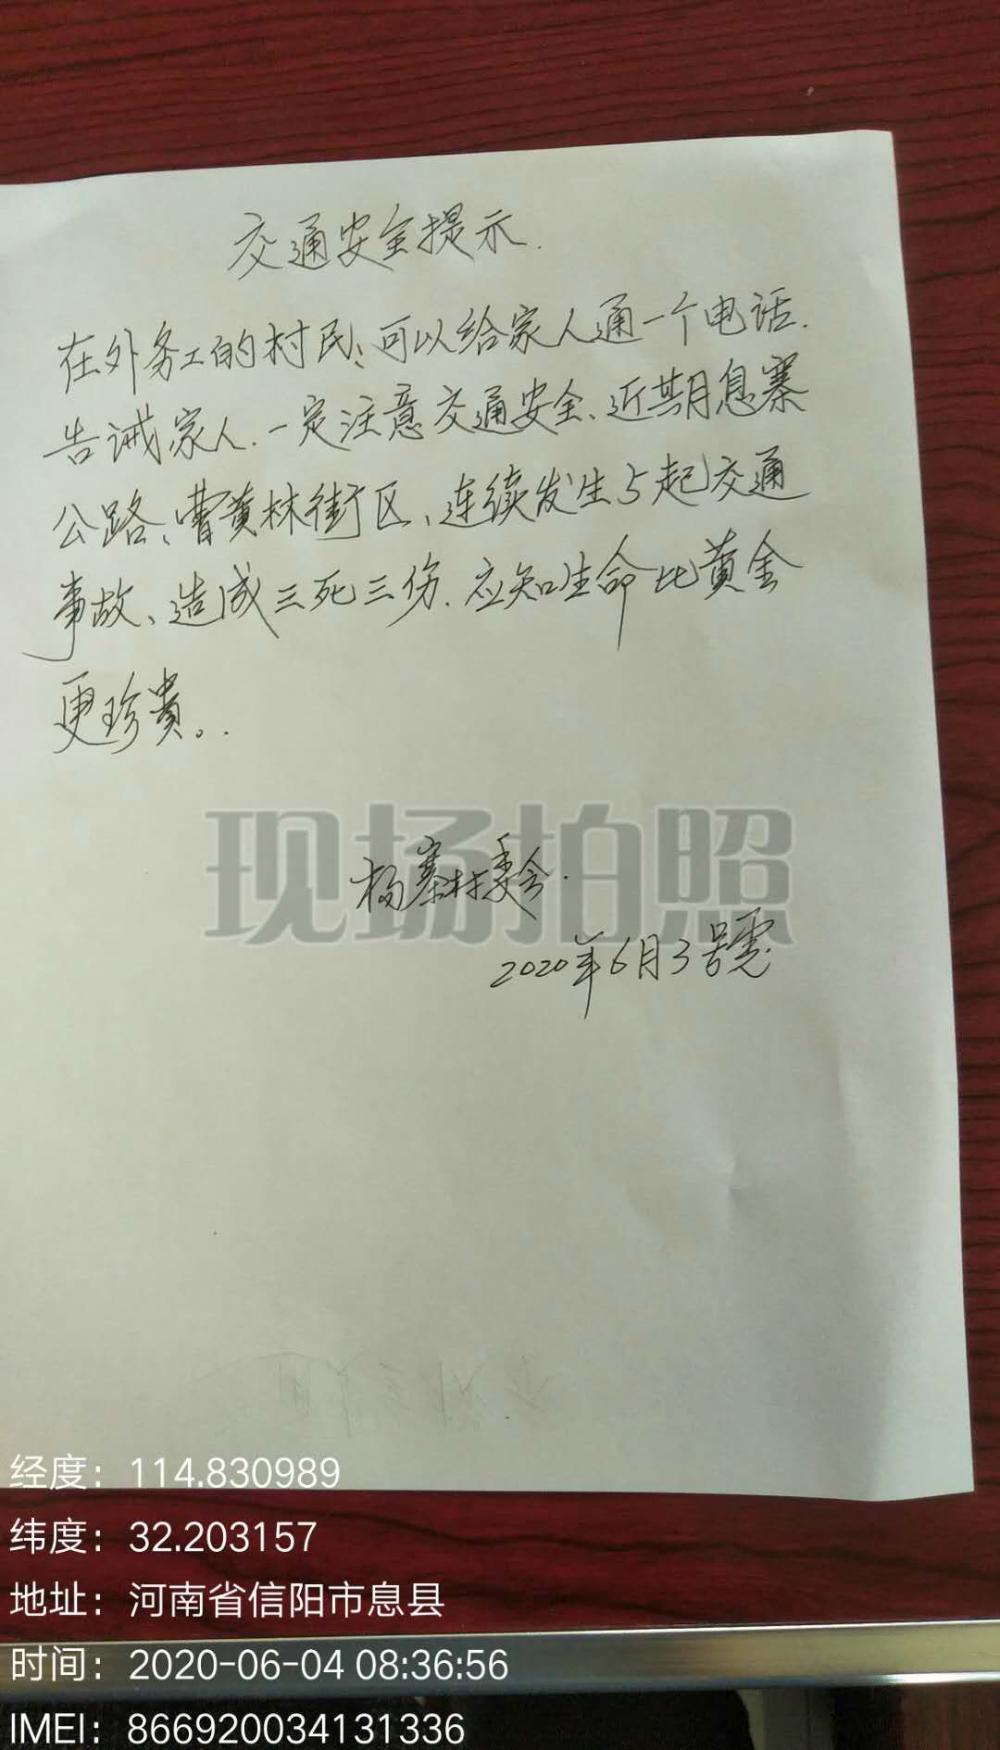 交通安全提示.
在外务工的村民、可以给家人通一个电话.
告诫家人.一定注意交通安全、近期息寨
公路、曹黄林街区、连续发生5起交通
事故、造成三死三伤.应知生命比黄金
更珍贵。.
现场拍照
杨寨村委会.
2020年6月3号
经度：114.830989
纬度：32.203157
地址：河南省信阳市息县
时间：2020-06-04 08:36:56
IMEI：866920034131336